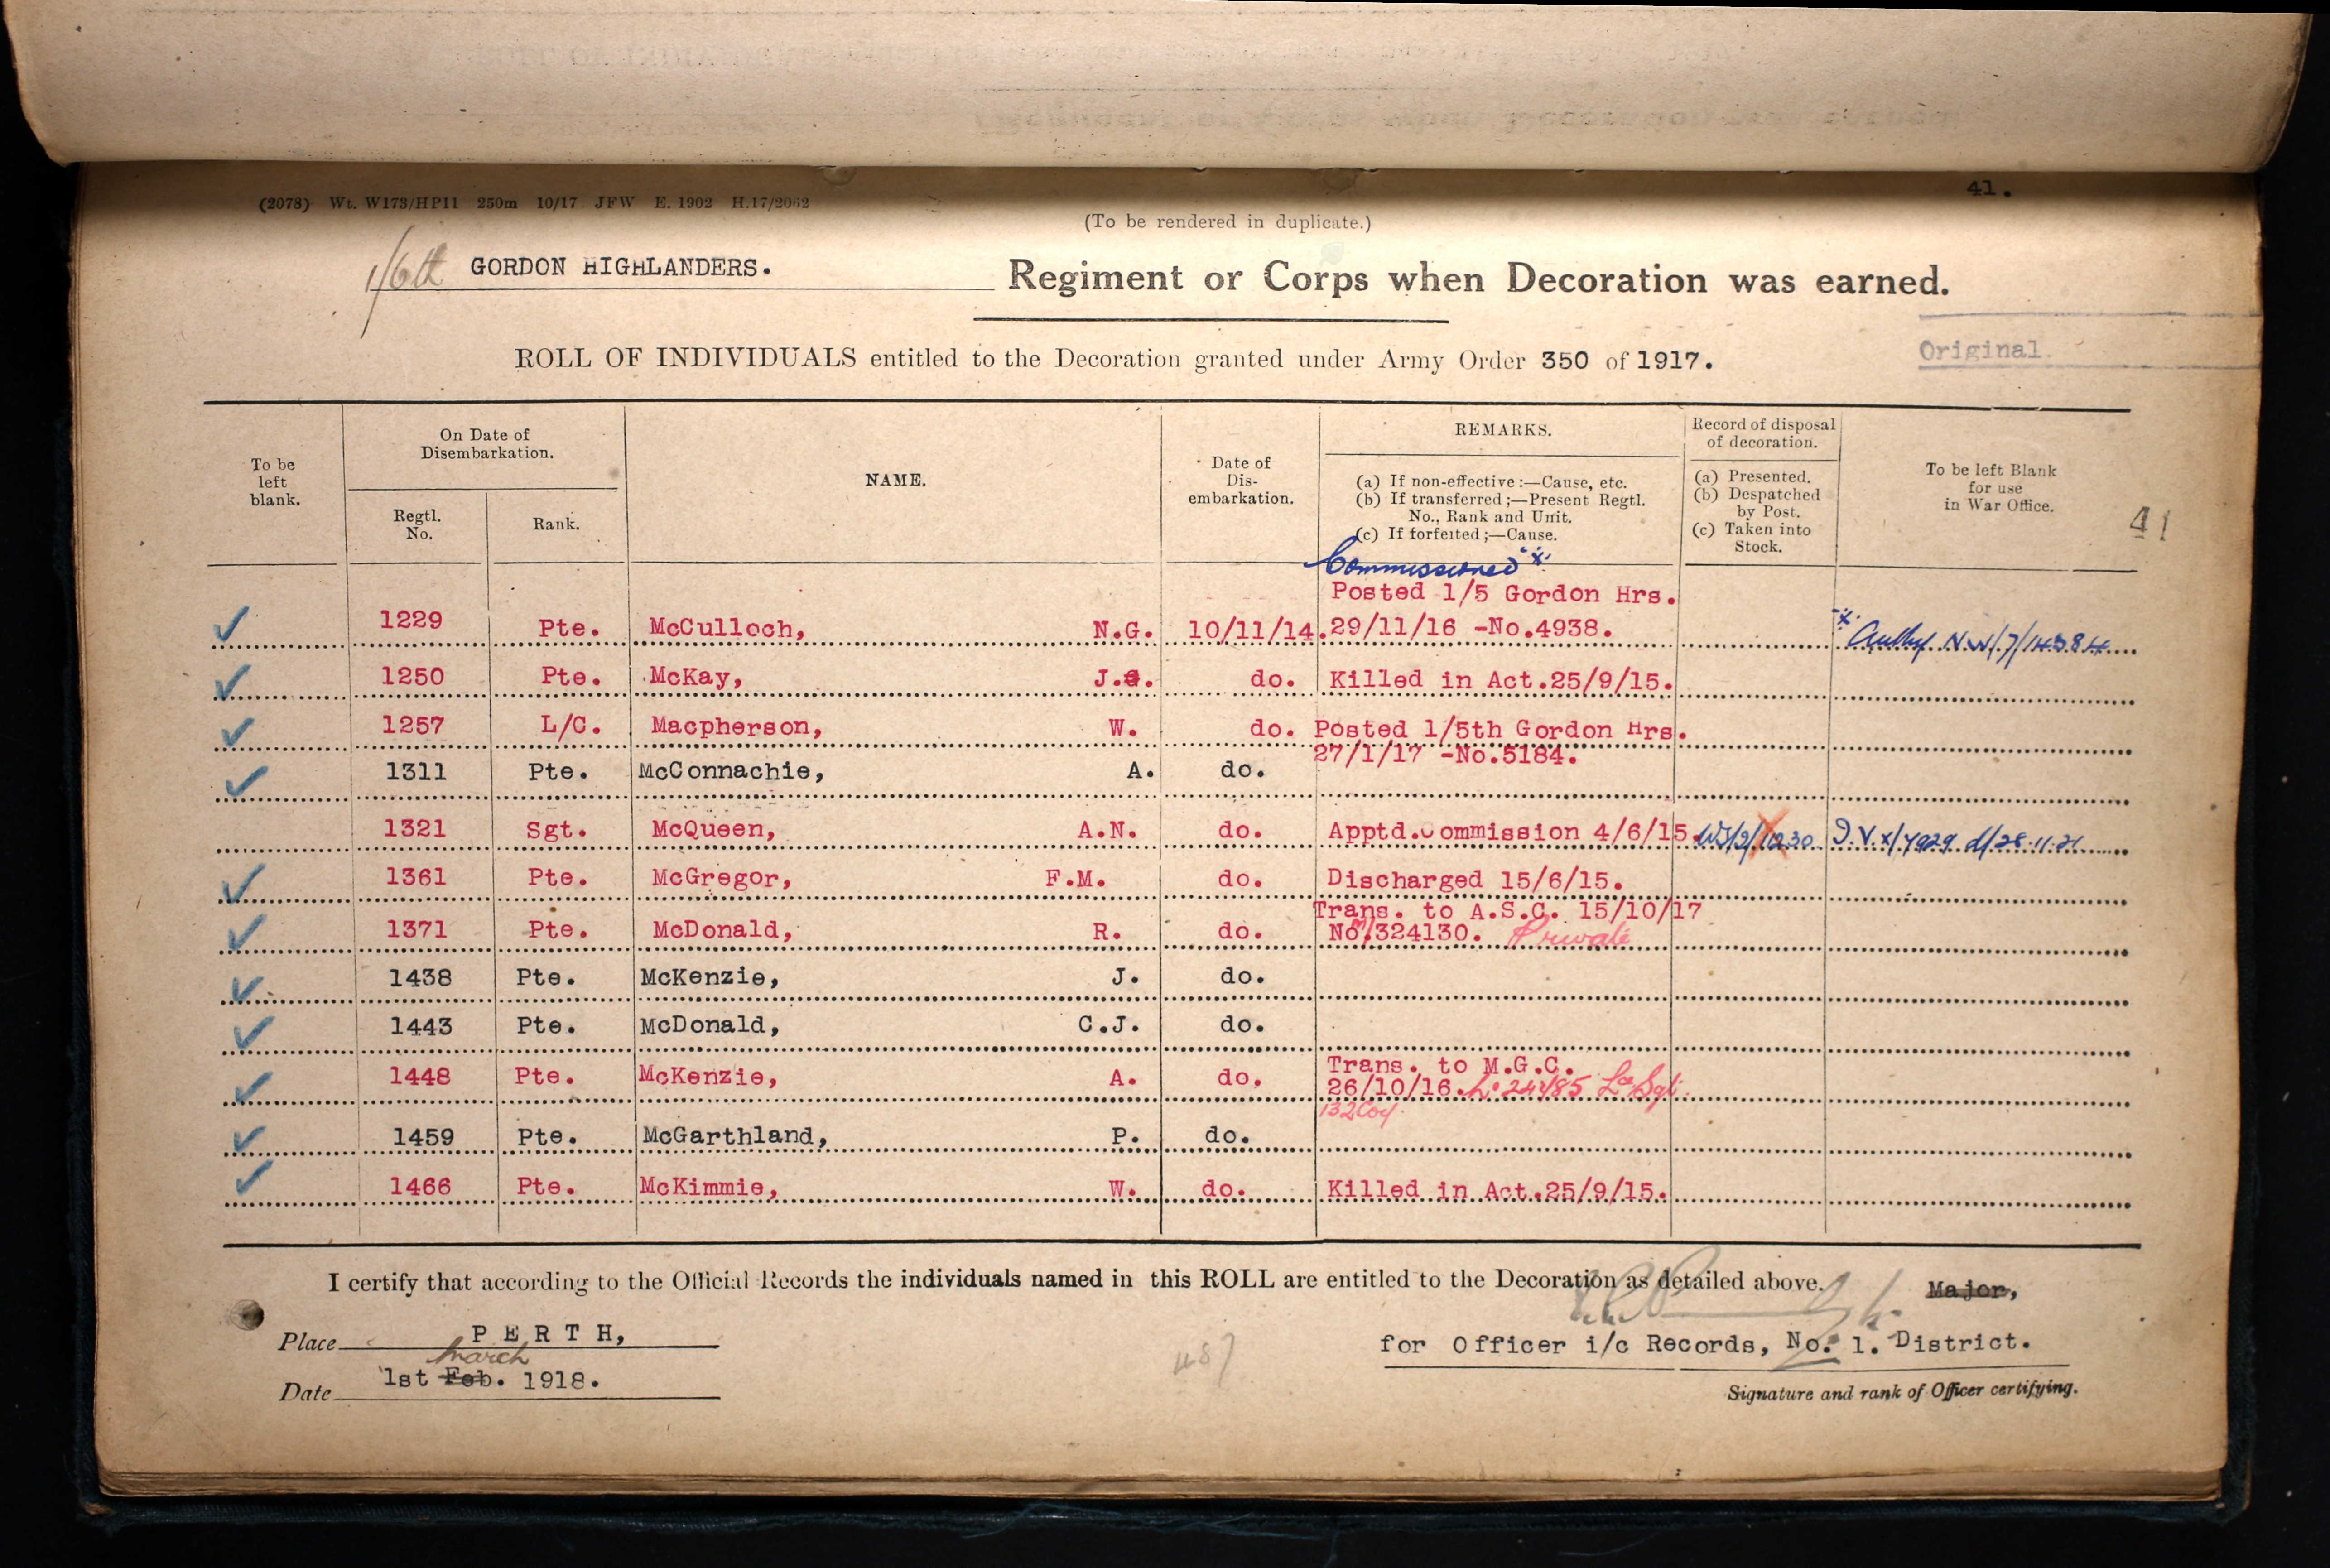 41.
(2078) Wt. W173/HP11 250m 10/17 JFW E. 1902 H.17/2062
(To be rendered in duplicate.)
1/6th GORDON HIGHLANDERS. Regiment or Corps when Decoration was earned.
Original.
ROLL OF INDIVIDUALS entitled to the Decoration granted under Army Order 350 of 1917.
To be left blank.
On Date of Disembarkation.
Regtl. No.
Rank.
NAME.
Date of Dis-embarkation.
REMARKS.
(a) If non-effective:—Cause, etc.
(b) If transferred;—Present Regtl. No., Rank and Unit.
(c) If forfeited;—Cause.
Record of disposal of decoration.
(a) Presented.
(b) Despatched by Post.
(c) Taken into Stock.
To be left Blank for use in War Office.
41
Commissioned x
Posted 1/5 Gordon Hrs.
1229 Pte. McCulloch, N.G. 10/11/14. 29/11/16 -No.4938. x Authy. N.W/7/14384
1250 Pte. McKay, J.G. do. Killed in Act.25/9/15.
1257 L/C. Macpherson, W. do. Posted 1/5th Gordon Hrs.
27/1/17 -No.5184.
1311 Pte. McConnachie, A. do.
1321 Sgt. McQueen, A.N. do. Apptd.Commission 4/6/15. I.V.X/7929 d/28.11.21
1361 Pte. McGregor, F.M. do. Discharged 15/6/15.
Trans. to A.S.C. 15/10/17
1371 Pte. McDonald, R. do. No M/324130. Private
1438 Pte. McKenzie, J. do.
1443 Pte. McDonald, C.J. do.
Trans. to M.G.C.
1448 Pte. McKenzie, A. do. 26/10/16. No 24485 Lce Sgt.
132 Coy.
1459 Pte. McGarthland, P. do.
1466 Pte. McKimmie, W. do. Killed in Act.25/9/15.
I certify that according to the Official Records the individuals named in this ROLL are entitled to the Decoration as detailed above.
Major,
Place PERTH,
for Officer i/c Records, No. 1. District.
March
Date 1st Feb. 1918.
Signature and rank of Officer certifying.